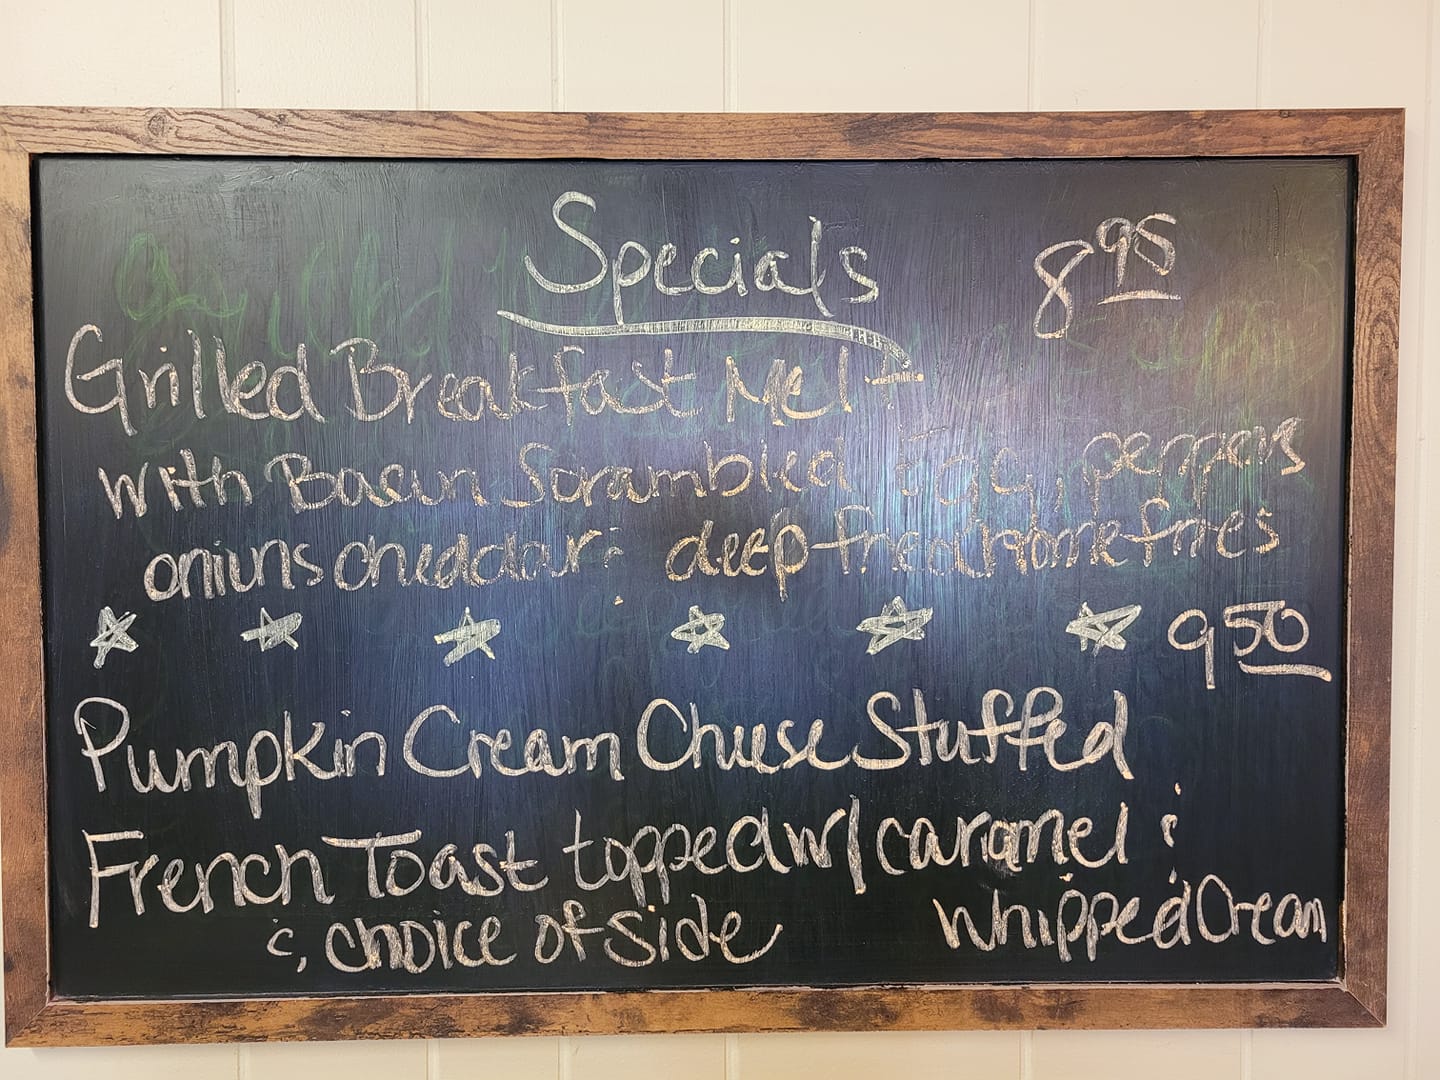 Specials 8 95
Grilled Breakfast Melt
with Bacun Scrambled Egg, peppers
oniuns cheddar & deep fried home fries
9 50
Pumpkin Cream Cheese Stuffed
French Toast topped w/ caramel &
whipped Cream
& choice of side